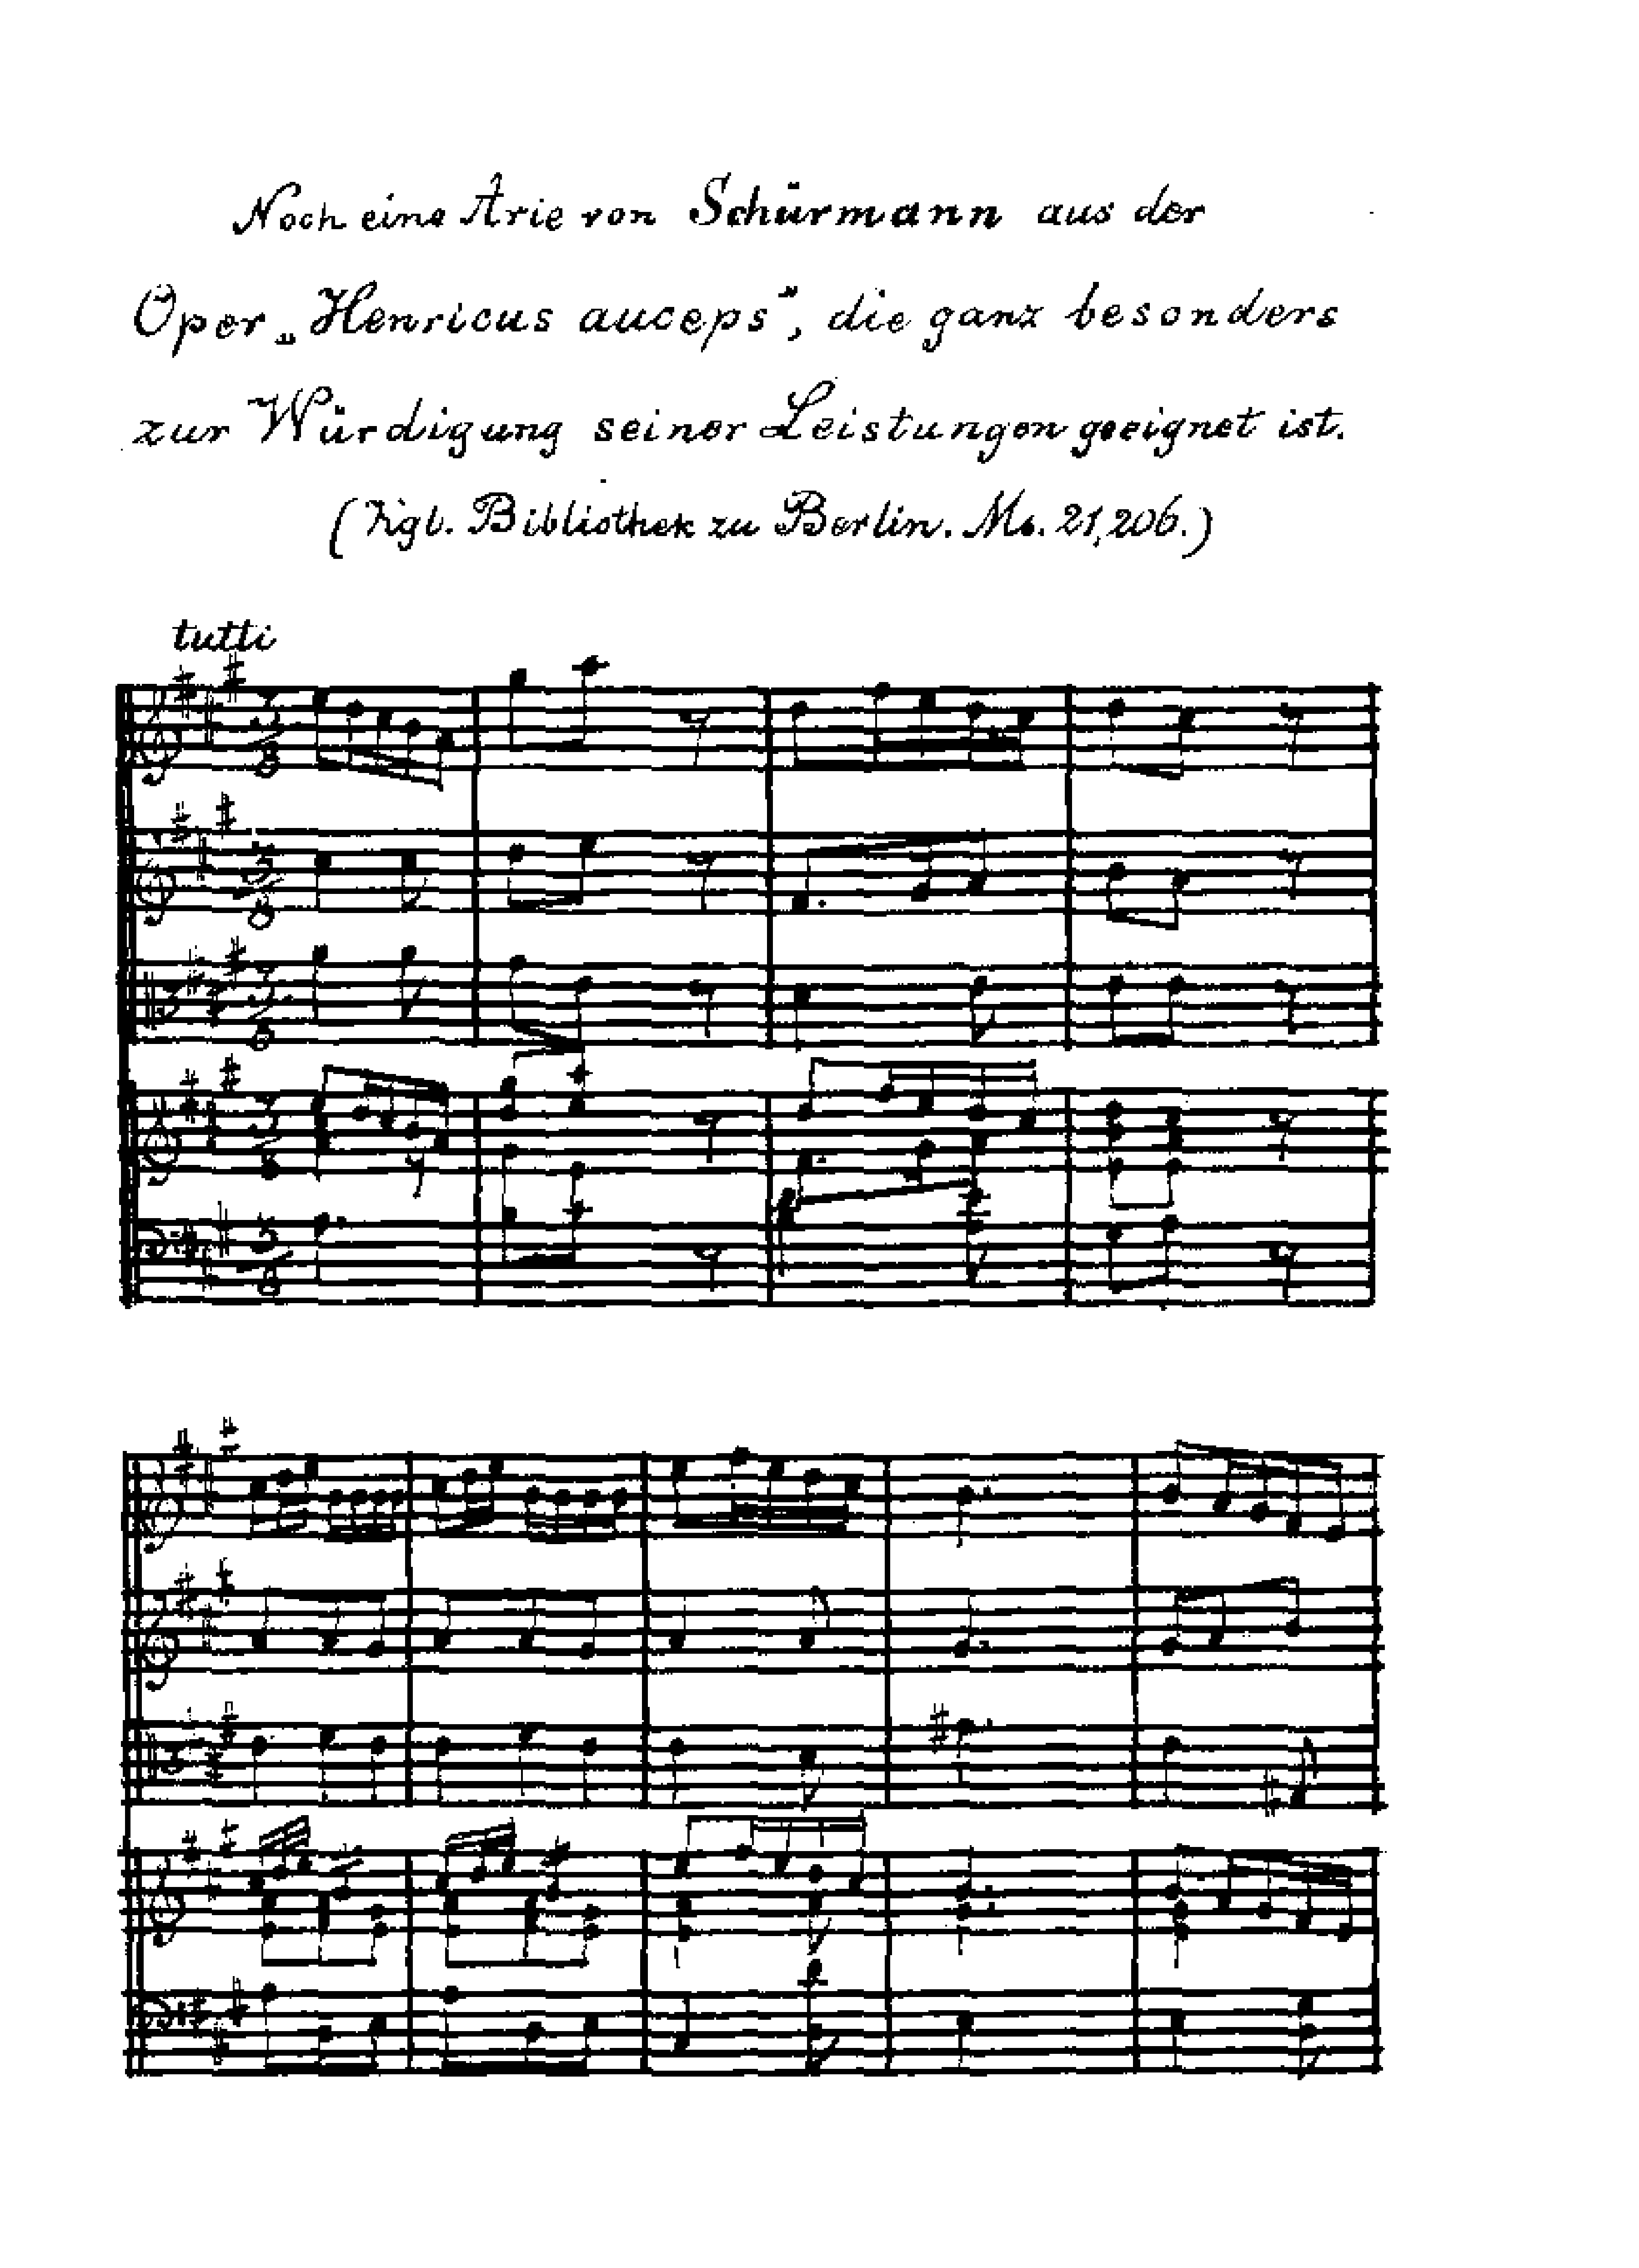 Noch eine Arie von Schürmann aus der
Oper „Henricus auceps", die ganz besonders
zur Würdigung seiner Leistungen geeignet ist.
(Kgl. Bibliothek zu Berlin. Ms. 21,206.)
tutti